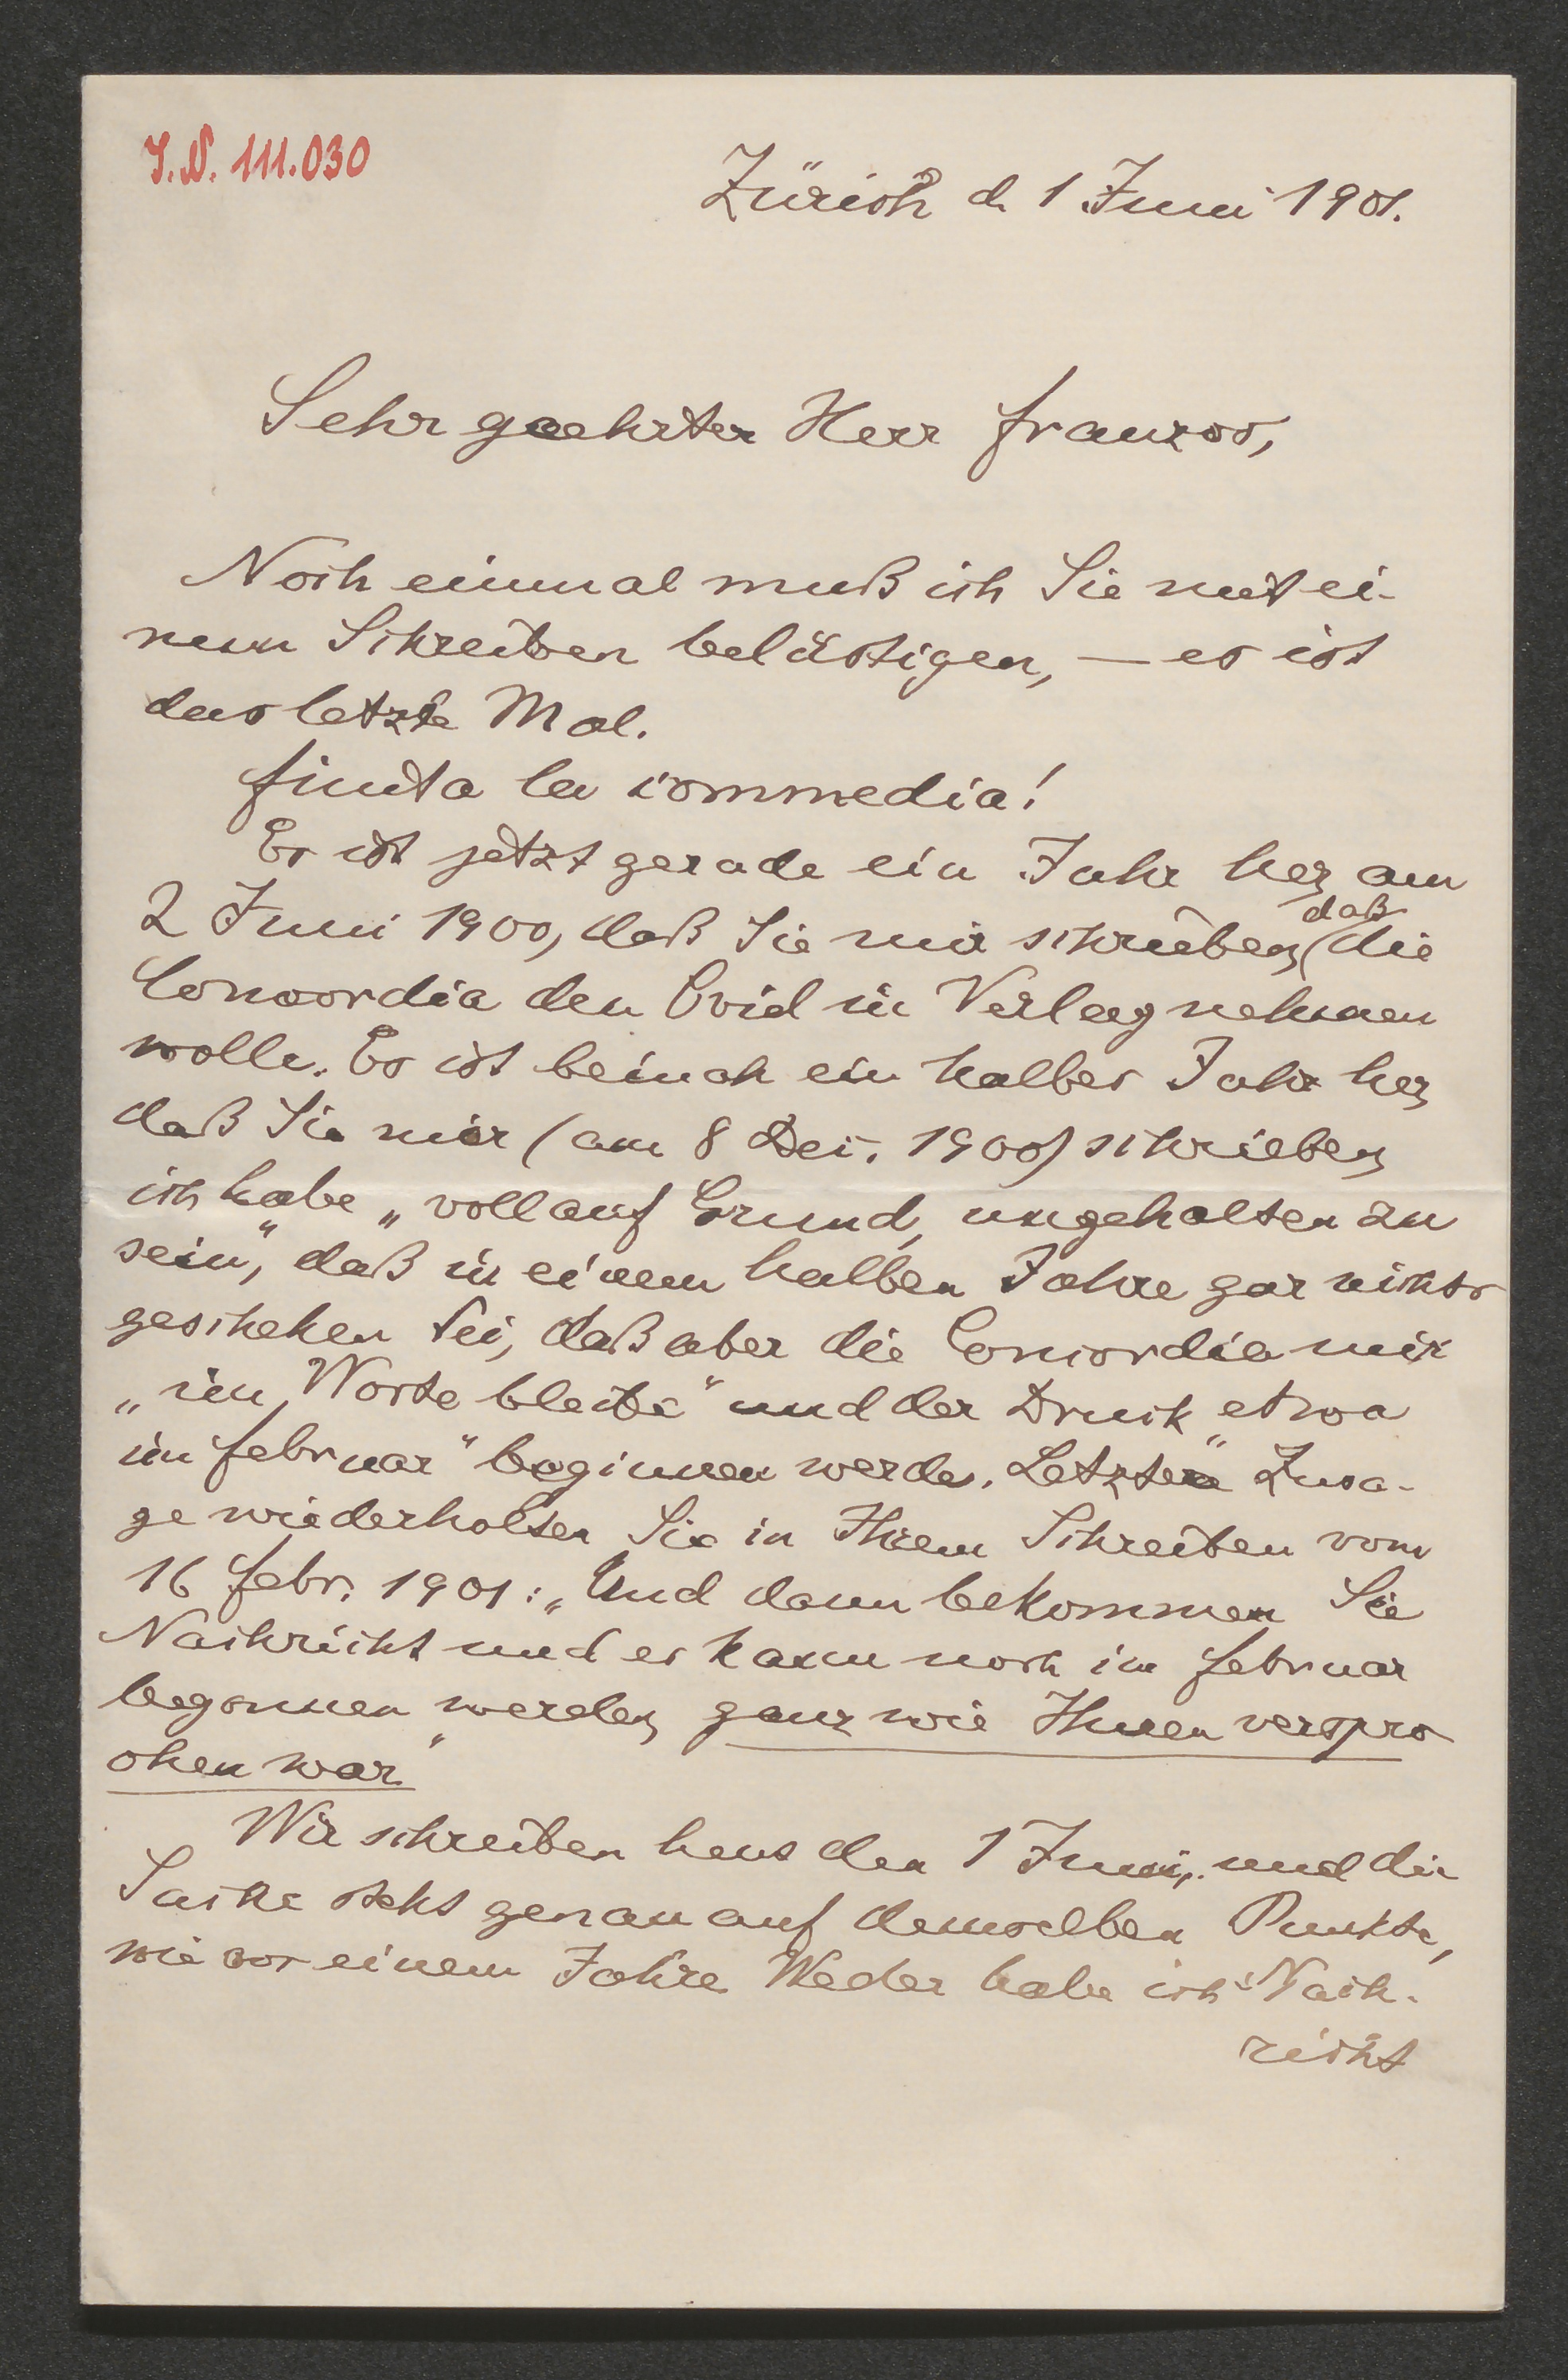 I.N. 111.030
Zürich d. 1 Juni 1901.
Sehr geehrter Herr Franzos,
Noch einmal muß ich Sie mit ei-
nem Schreiben belästigen, — es ist
das letzte Mal.
finita la commedia!
Es ist jetzt gerade ein Jahr her, am
daß
2 Juni 1900, daß Sie mir schrieben, die
Concordia den Ovid in Verlag nehmen
wolle. Es ist beinah ein halbes Jahr her,
daß Sie mir (am 8 Dez. 1900) schrieben,
ich habe „vollauf Grund, ungehalten zu
sein", daß in einem halben Jahre gar nichts
geschehen sei, daß aber die Concordia mir
„im Worte bleibe" und der Druck „etwa
im Februar" beginnen werde. Letztere Zusa-
ge wiederholten Sie in Ihrem Schreiben vom
16 Febr. 1901: „Und dann bekommen Sie
Nachricht und es kann noch im Februar
begonnen werden, ganz wie Ihnen verspro
chen war"
Wir schreiben heut den 1 Juni, und die
Sache steht genau auf demselben Punkte,
wie vor einem Jahre. Weder habe ich Nach-
richt